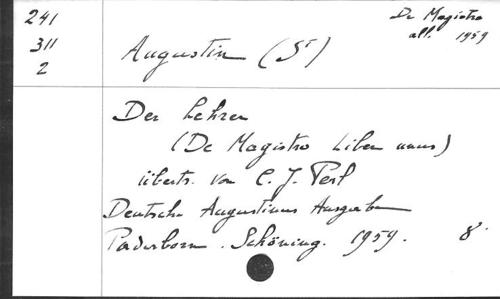 241
311
2
De Magistro
all. 1959
Augustin (St)
Der Lehrer
(De Magistro Liber unus)
übertr. von C. J. Perl
Deutsche Augustinus Ausgabe
Paderborn. Schöning. 1959. 8°